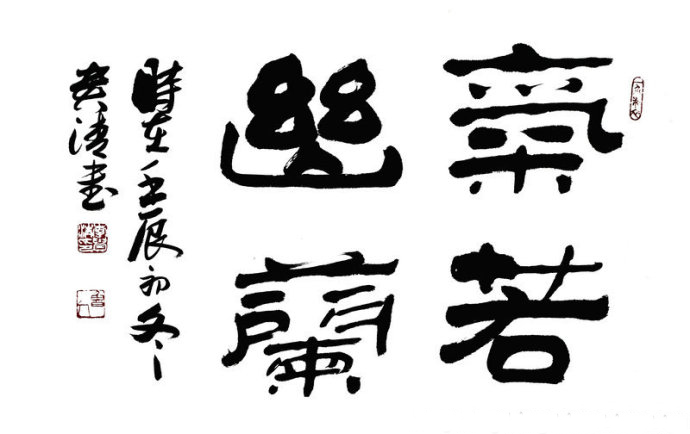 氣若
幽蘭
時在壬辰初冬
清書